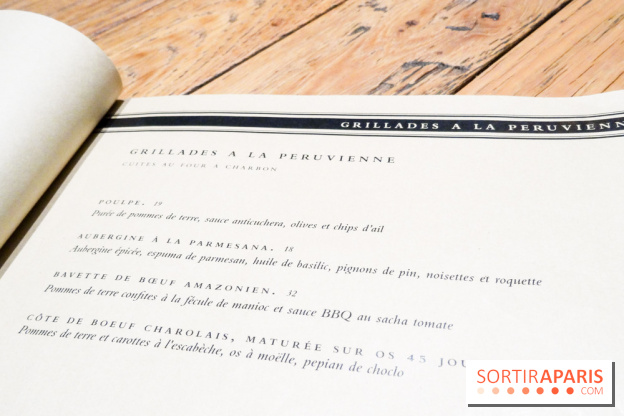 GRILLADES A LA PERUVIENN
GRILLADES A LA PERUVIENNE
CUITES AU FOUR A CHARBON
POULPE. 19
Purée de pommes de terre, sauce anticuchera, olives et chips d'ail
AUBERGINE À LA PARMESANA. 18
Aubergine épicée, espuma de parmesan, huile de basilic, pignons de pin, noisettes et roquette
BAVETTE DE BŒUF AMAZONIEN. 32
Pommes de terre confites à la fécule de manioc et sauce BBQ au sacha tomate
CÔTE DE BOEUF CHAROLAIS, MATURÉE SUR OS 45 JOU
Pommes de terre et carottes à l'escabèche, os à moëlle, pepian de choclo
SORTIRAPARIS
.COM